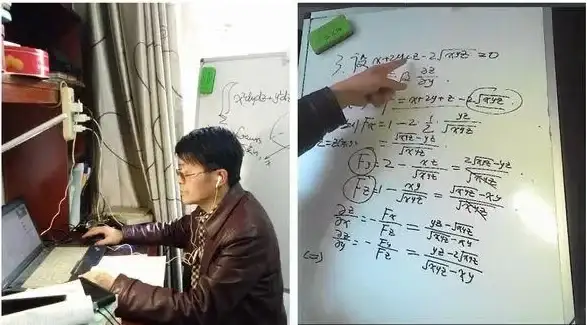 ∬ x²dydz + y²dz
3. 设 x+2y+z-2√xyz =0
∂z/∂y .
= x+2y+z-2√xyz
Fx=1-2·1/2·yz/√xyz
= (√xyz-yz)/√xyz
Fy=2-xz/√xyz = (2√xyz-yz)/√xyz
Fz=1-xy/√xyz = (√xyz-xy)/√xyz .
∂z/∂x = -Fx/Fz = (yz-√xyz)/(√xyz-xy)
∂z/∂y = -Fy/Fz = (yz-2√xyz)/(√xyz-xy)